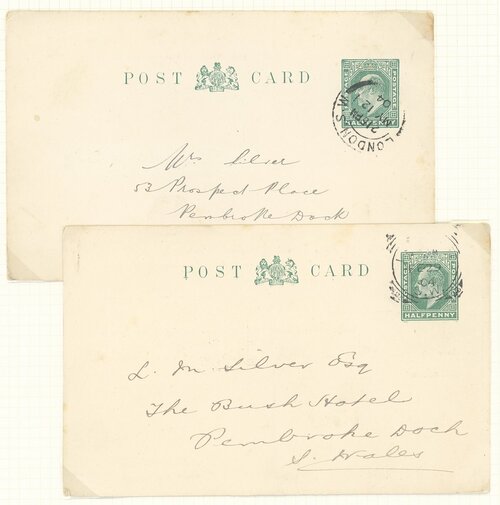 POST CARD
LONDON.S.W
2.15PM
MY 12
04
Mrs Silver
53 Prospect Place
Pembroke Dock
POST CARD
HALFPENNY
L. M. Silver Esq
The Bush Hotel
Pembroke Dock
S. Wales